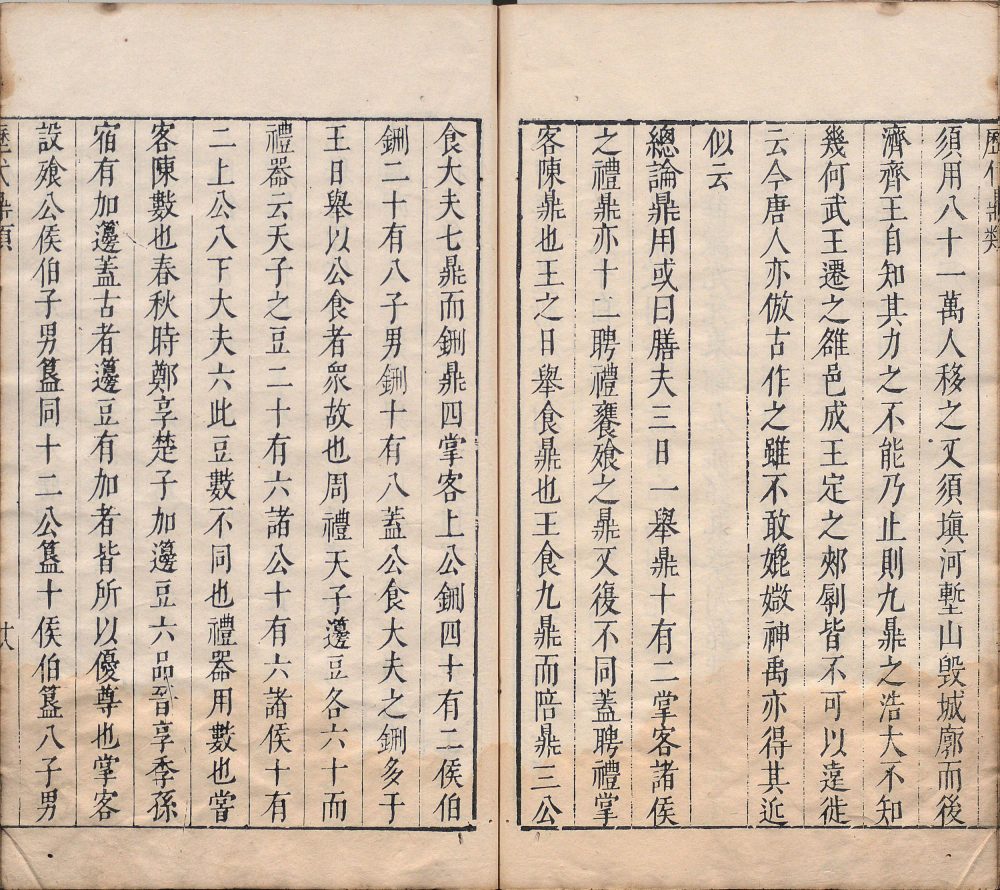 歷代鼎類
須用八十一萬人移之又須塡河塹山毀城廓而後
濟齊王自知其力之不能乃止則九鼎之浩大不知
幾何武王遷之雒邑成王定之郟鄏皆不可以遠徙
云今唐人亦倣古作之雖不敢媲媺神禹亦得其近
似云
總論鼎用或曰膳夫三日一舉鼎十有二掌客諸侯
之禮鼎亦十二聘禮饔飧之鼎又復不同蓋聘禮掌
客陳鼎也王之日舉食鼎也王食九鼎而陪鼎三公
食大夫七鼎而鉶鼎四掌客上公鉶四十有二侯伯
鉶二十有八子男鉶十有八蓋公食大夫之鉶多于
王日舉以公食者衆故也周禮天子籩豆各六十而
禮器云天子之豆二十有六諸公十有六諸侯十有
二上公八下大夫六此豆數不同也禮器用數也嘗
客陳數也春秋時鄭享楚子加籩豆六品晉享季孫
宿有加籩蓋古者籩豆有加者皆所以優尊也掌客
設飧公侯伯子男簋同十二公簋十侯伯簋八子男
歷代鼎類
廿八